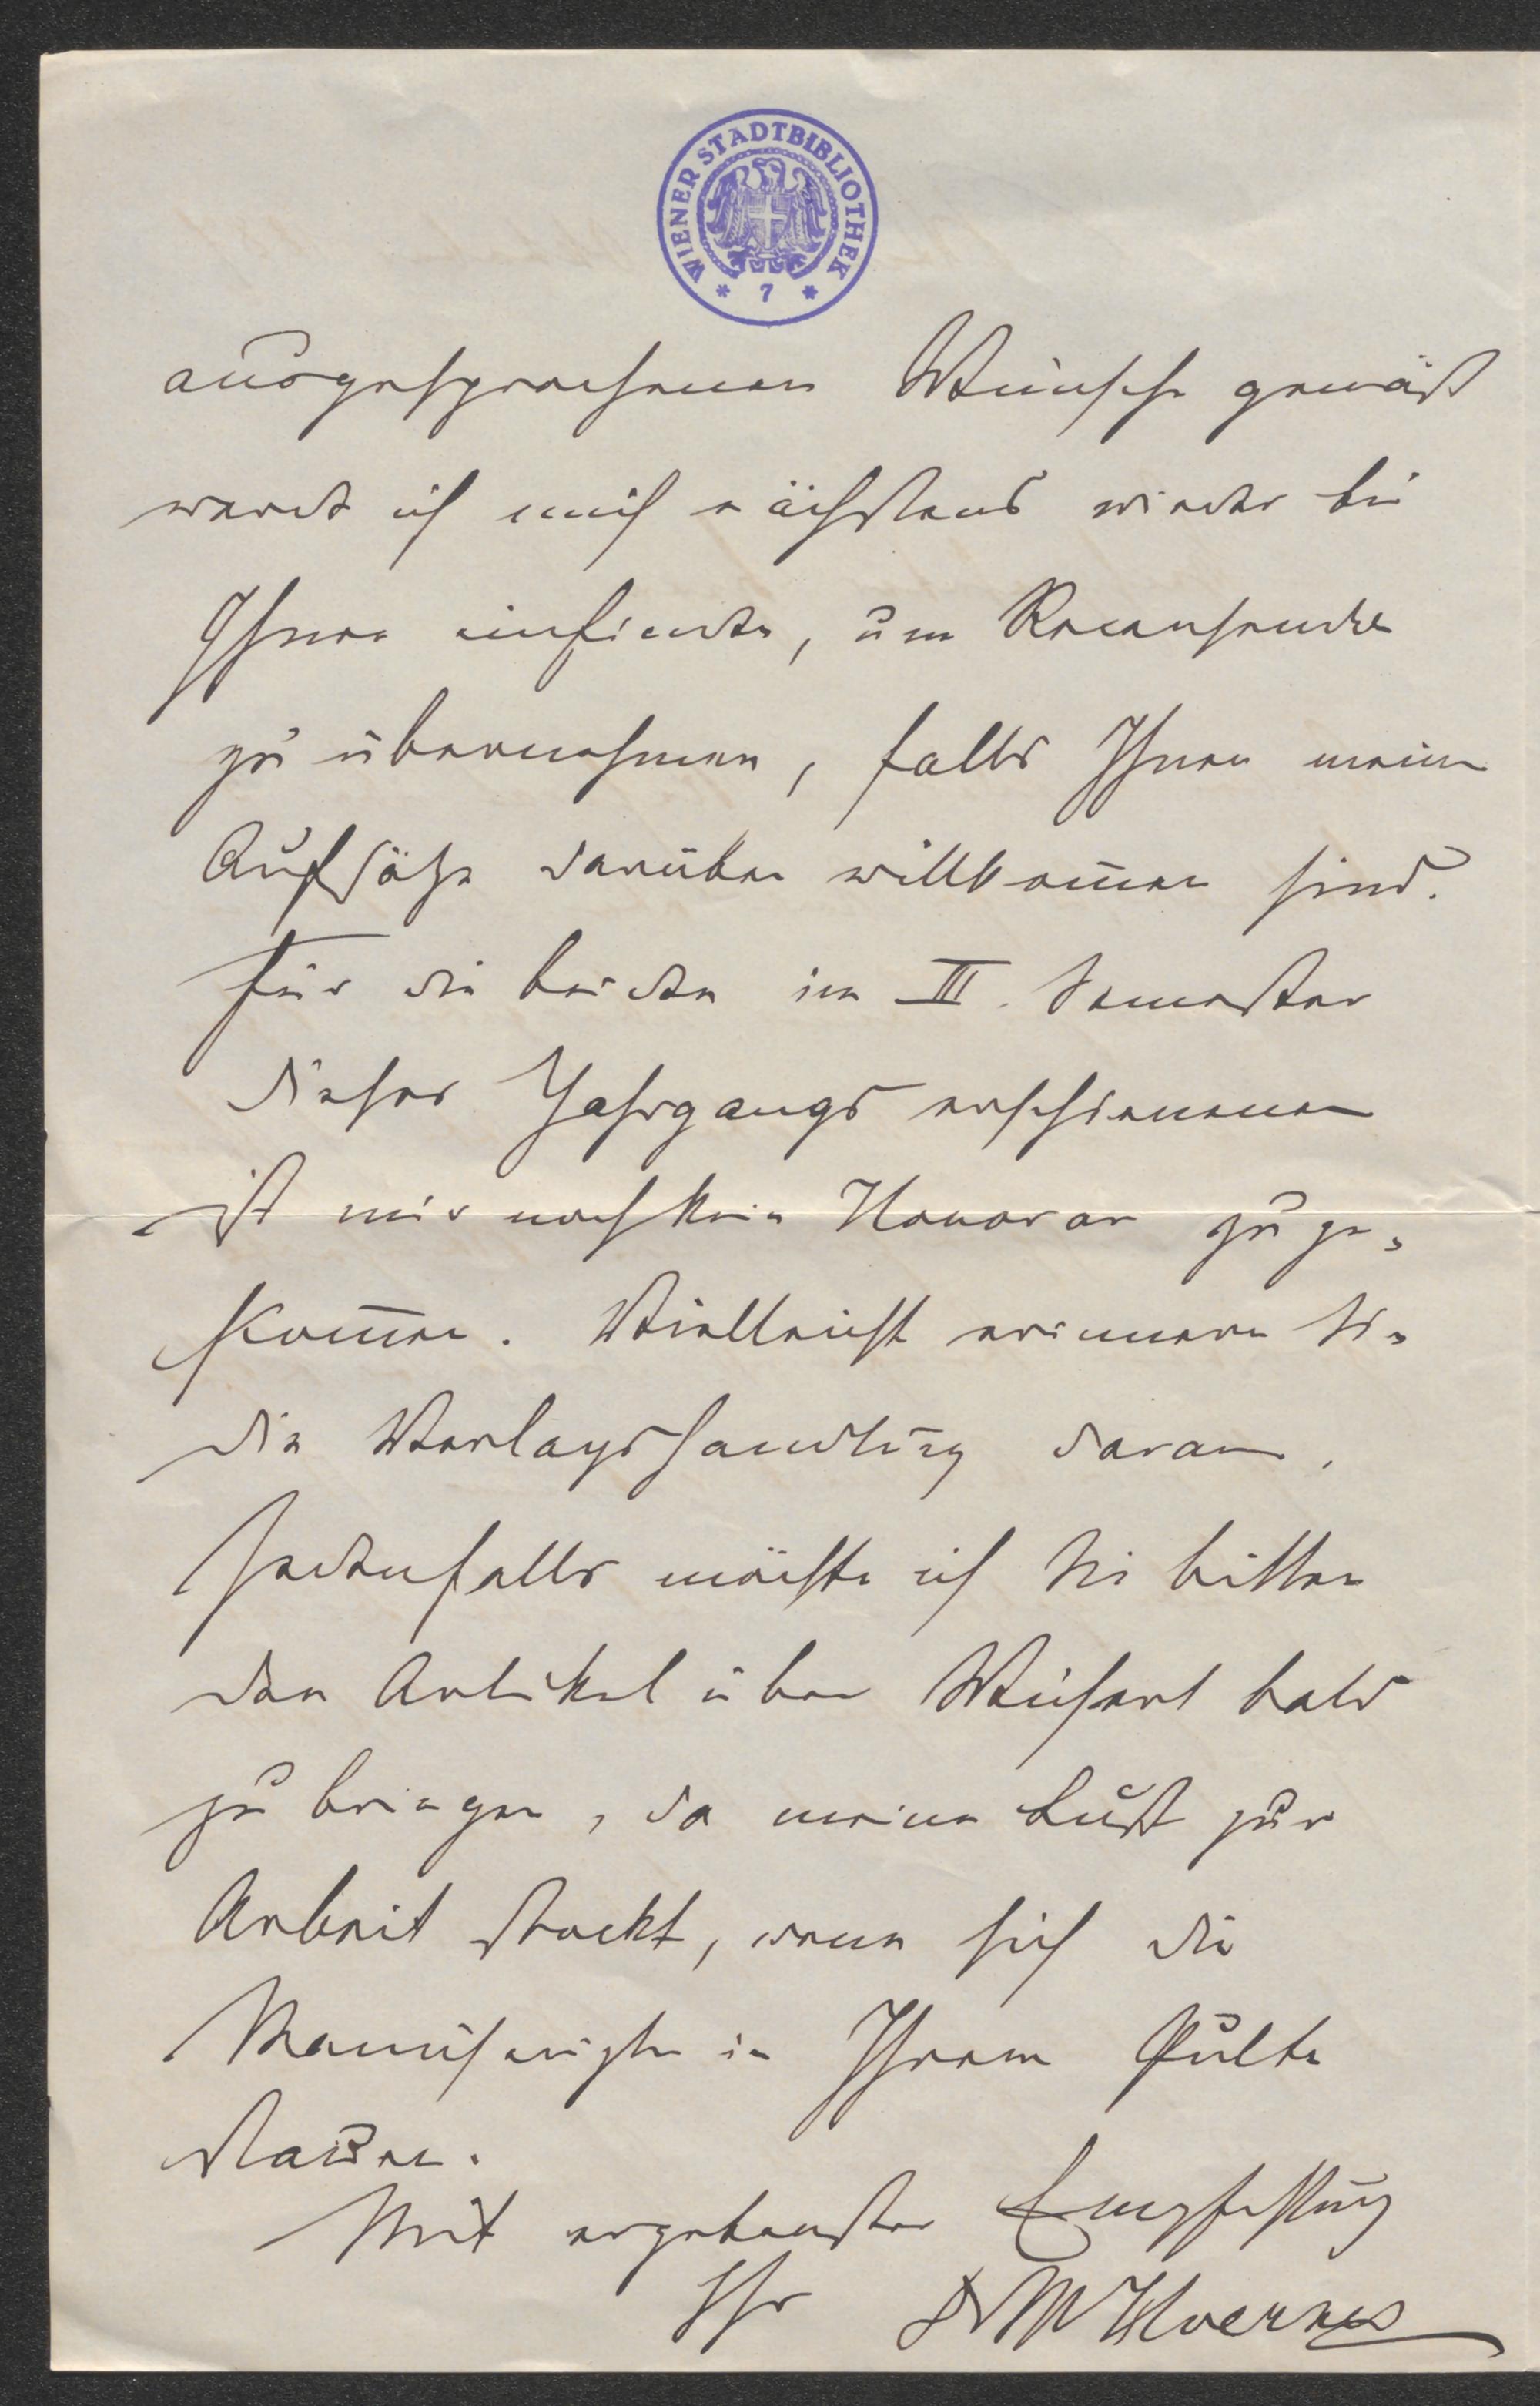 WIENER STADTBIBLIOTHEK
* 7 *
ausgesprochenen Wunsche gemäß
werde ich mich nächstens wieder bei
Ihnen einfinden, um Recensenda
zu übernehmen, falls Ihnen meine
Aufsätze darüber willkom̄en sind.
Für die beiden im III. Semester
dieses Jahrgangs erschienenen
ist mir noch kein Honorar zuge-
kom̄en. Vielleicht erinnern Sie
die Verlagshandlung daran.
Jedenfalls möchte ich Sie bitten
den Artikel über Weichert bald
zu bringen, da meine Lust zur
Arbeit stockt, wenn sich die
Manuscripte in Ihrem Pulte
stauen.
Mit ergebenster Empfehlung
Ihr Dr M Hoernes